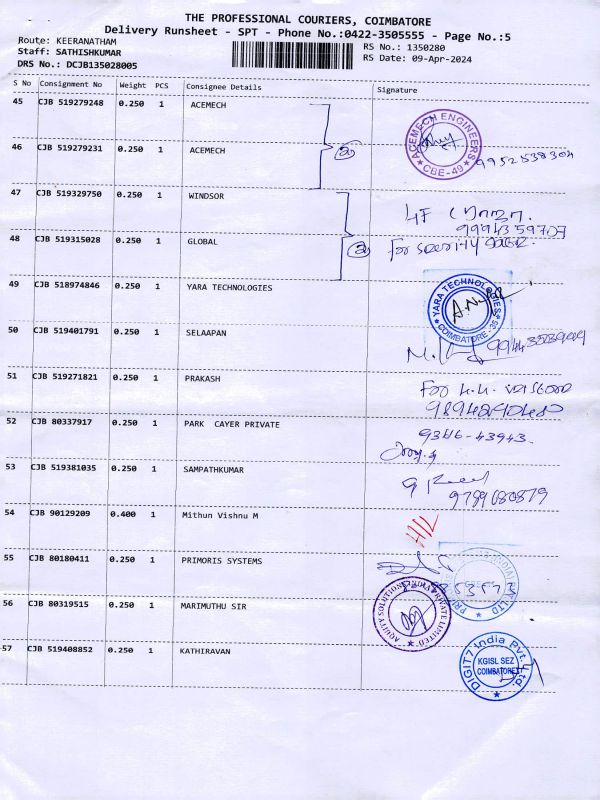 THE PROFESSIONAL COURIERS, COIMBATORE
Delivery Runsheet - SPT - Phone No.:0422-3505555 - Page No.:5
Route: KEERANATHAM
Staff: SATHISHKUMAR
DRS No.: DCJB135028005
RS No.: 1350280
RS Date: 09-Apr-2024
S No Consignment No Weight PCS Consignee Details Signature
45 CJB 519279248 0.250 1 ACEMECH
46 CJB 519279231 0.250 1 ACEMECH
ACEMECH ENGINEERS
CBE-49
9952538304
47 CJB 519329750 0.250 1 WINDSOR
9994359707
48 CJB 519315028 0.250 1 GLOBAL
for
49 CJB 518974846 0.250 1 YARA TECHNOLOGIES
YARA TECHNOLOGIES
COIMBATORE - 35
50 CJB 519401791 0.250 1 SELAAPAN
51 CJB 519271821 0.250 1 PRAKASH
For
52 CJB 80337917 0.250 1 PARK CAYER PRIVATE
9346-43943.
53 CJB 519381035 0.250 1 SAMPATHKUMAR
9789080879
54 CJB 90129209 0.400 1 Mithun Vishnu M
55 CJB 80180411 0.250 1 PRIMORIS SYSTEMS
56 CJB 80319515 0.250 1 MARIMUTHU SIR
57 CJB 519408852 0.250 1 KATHIRAVAN
DIGIT7 India Pvt. Ltd.
KGISL SEZ
COIMBATORE